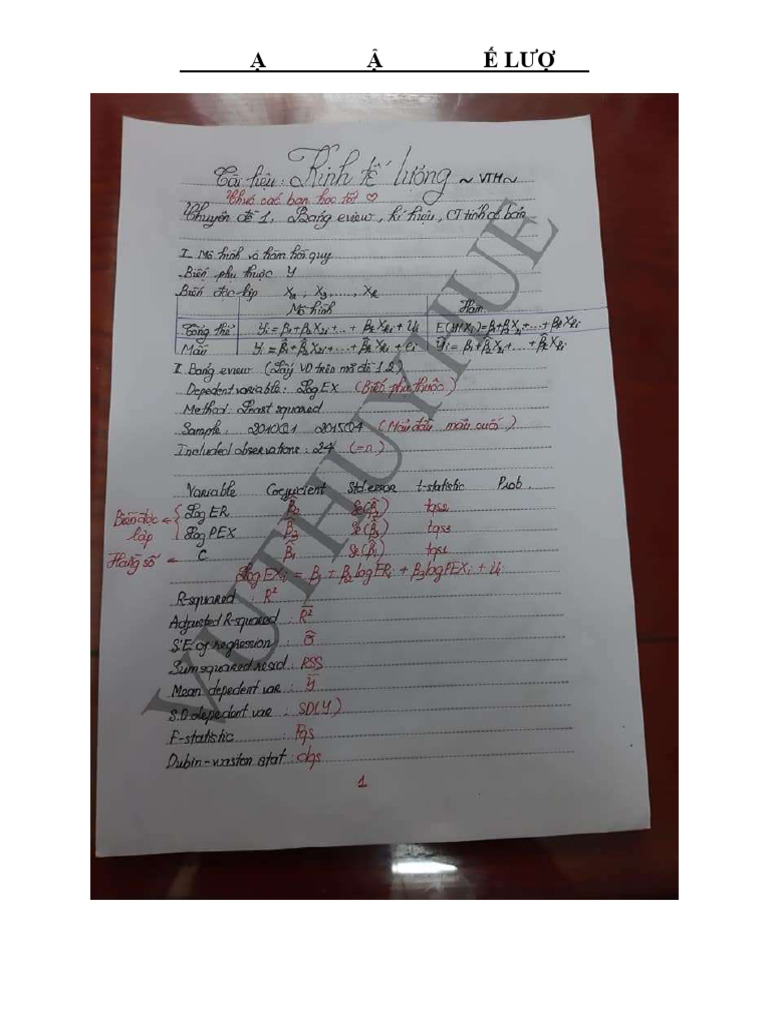 Ạ Ậ Ế LƯỢ
Tài liệu: Kinh tế lượng ~ VTH ~
Chúc các bạn học tốt ♡
Chuyên đề 1. Bảng eview, kí hiệu, CT tính cơ bản
I. Mô hình và hàm hồi quy
Biến phụ thuộc Y
Biến độc lập X₂, X₃, ..., Xₖ
Mô hình Hàm
Tổng thể Yi = β₁ + β₂X₂i + ... + βₖXₖi + Ui E(Y/Xi) = β₁ + β₂X₂i + ... + βₖXₖi
Mẫu Yi = β̂₁ + β̂₂X₂i + ... + β̂ₖXₖi + ei Ŷi = β̂₁ + β̂₂X₂i + ... + β̂ₖXₖi
I. Bảng eview (Lấy VD trên mã đề 1.2)
Depedent variable: Log EX (Biến phụ thuộc)
Method: Least squared
Sample: 2010Q1 2015Q4 (Mẫu đầu mẫu cuối)
Included observations: 24 (=n)
Variable Coefficient Std error t-statistic Prob
Biến độc lập
Log ER β̂₂ Se(β̂₂) tqs2
Log PEX β̂₃ Se(β̂₃) tqs3
Hằng số C β̂₁ Se(β̂₁) tqs1
Log EXi = β₁ + β₂logERi + β₃logPEXi + Ui
R-squared : R²
Adjusted R-squared : R̄²
S.E of regression : σ̂
Sum squared resid : RSS
Mean depedent var : Ȳ
S.D depedent var : SD(Y)
F-statistic : Fqs
Dubin-waston stat : dqs
1
VUTHUYHUE